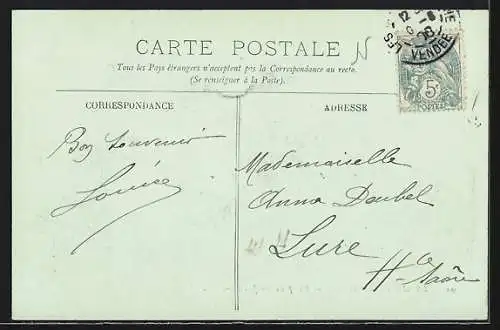 CARTE POSTALE
Tous les Pays étrangers n'acceptent pas la Correspondance au recto.
(Se renseigner à la Poste).
CORRESPONDANCE
ADRESSE
Bon souvenir
Louise
Mademoiselle
Anna Daubel
Lure
Hte Saône
VENDÉE
5
POSTES